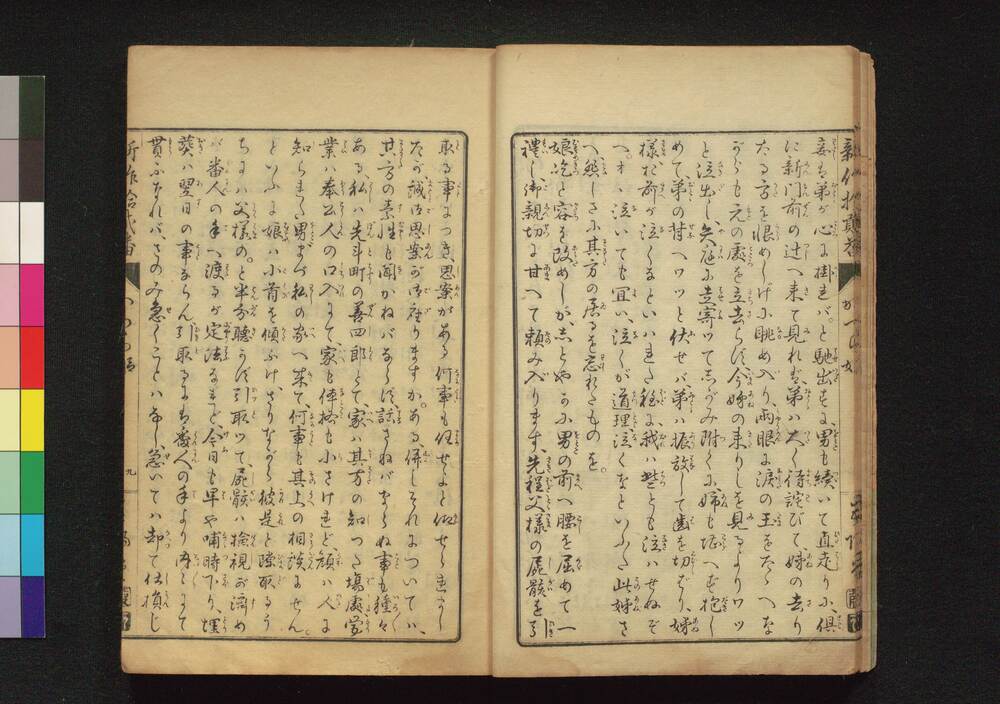 妾も弟が心に掛れバと馳出すを、男も続いて直走りに、倶
に新門前の辻へ来て見れバ、弟ハ久く待詫びて姉の去り
たる方を恨めしげに眺め入り、両眼に涙の玉をたゝへな
がらも元の處を立去らず、今姉の来りしを見るよりワッ
と泣出し、矢庭に走寄ッてしがみ附くに、姉も堪へず抱し
めて、弟の背へワッと伏せバ、弟ハ振放して歯を切ばり、姉
様だ斗が泣くなといハれた故に、我ハ些とも泣ハせぬぞ
へ、オヽ泣いても宜い、泣くが道理、泣くなといふた此姉さ
へ、然しさに其方の居るを忘れたものを。
娘ハ屹と容を改めしが、しとやかに男の前へ腰を屈めて一
禮し、御親切に甘へて頼み入ります、先程父様の屍骸を
取る事につき、思案がある何事も任せよと仰せられまし
たが、誠に思案が御座りますか。ある、併しそれについてハ、
其方の素性も聞かねバならず、話さねバならぬ事も種々
ある、私ハ先斗町の善四郎とて、家ハ其方の知った場處、営
業ハ奉公人の口入にて、家も体裁も小さけれど顔ハ人に
知られた男、まづ私の家へ来て何事も其上の相談にせん
といふに、娘ハ小首を傾ふけ、さりながら彼是と隙取るう
ちにハ父様の。と半分聴かず引取ッて、屍骸ハ検視が済め
バ番人の手へ渡るが定法なれど、今日も早や晡時下り、埋
葬ハ翌日の事ならん、引取るにも番人の手より内々にて
貰ふなれバ、さのみ急くことハなし、急いてハ却て仕損じ
九